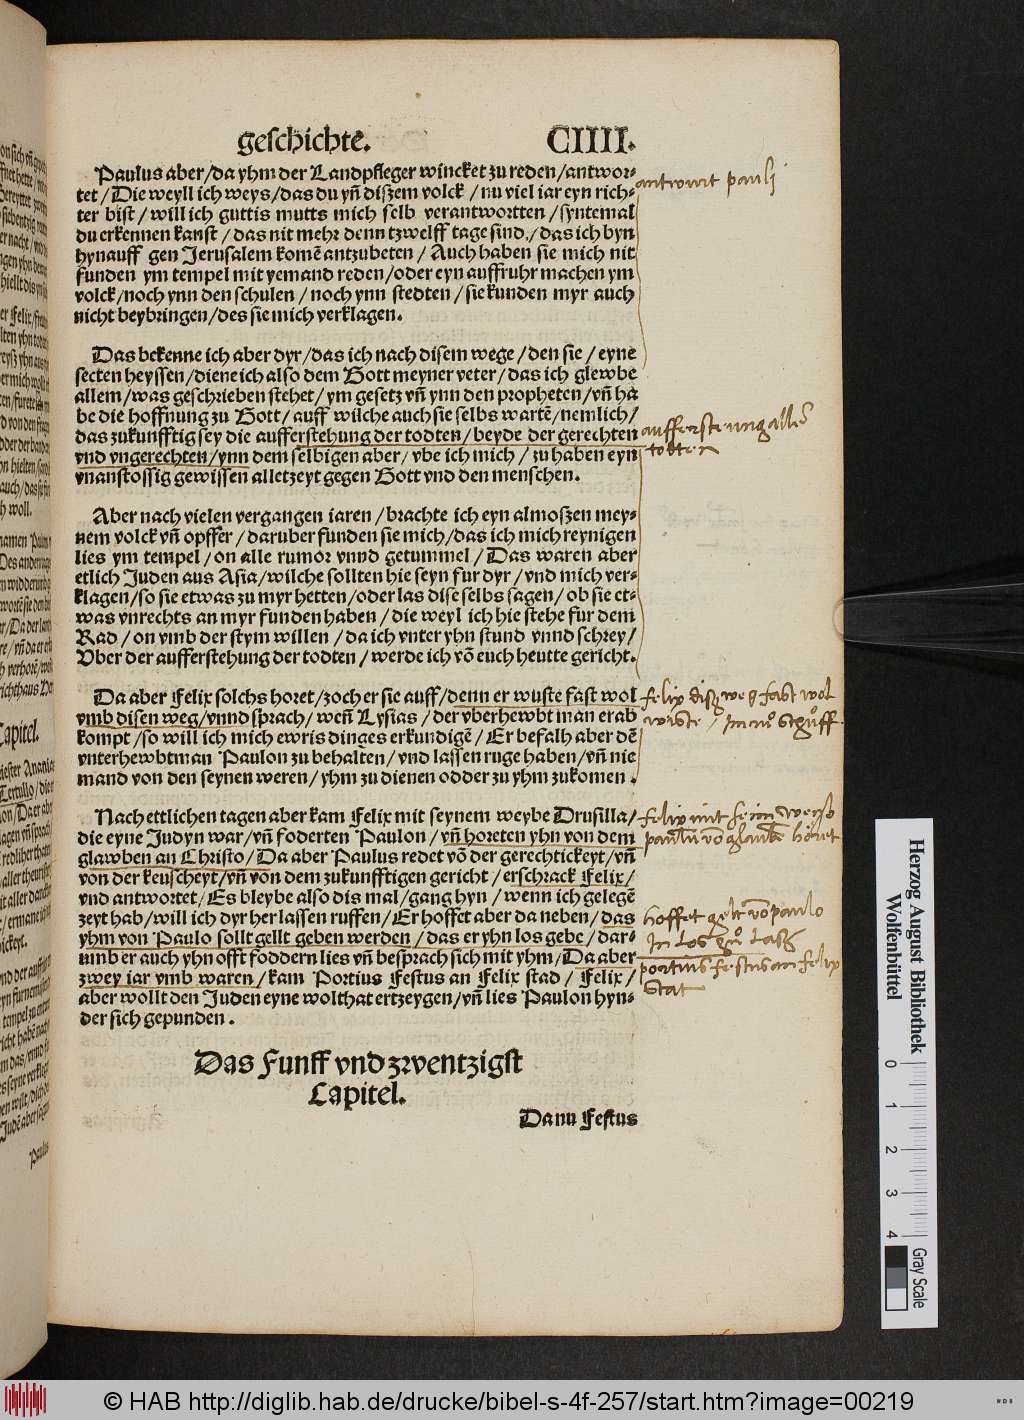 geschichte. CIIII.
Paulus aber/da yhm der Landpfleger wincket zu reden/antwor-
tet/Die weyll ich weys/das du yñ diszem volck/nu viel iar eyn rich-
ter bist/will ich guttis mutts mich selb verantwortten/syntemal
du erkennen kanst/das nit mehr denn tzwelff tage sind/das ich byn
hynauff gen Jerusalem komē antzubeten/Auch haben sie mich nit
funden ym tempel mit yemand reden/oder eyn auffruhr machen ym
volck/noch ynn den schulen/noch ynn stedten/sie kunden myr auch
nicht beybringen/des sie mich verklagen.
Das bekenne ich aber dyr/das ich nach disem wege/den sie/eyne
secten heyssen/diene ich also dem Gott meyner veter/das ich glewbe
allem/was geschrieben stehet/ym gesetz vñ ynn den propheten/vñ ha
be die hoffnung zu Gott/auff wilche auch sie selbs wartē/nemlich/
das zukunfftig sey die aufferstehung der todten/beyde der gerechten
vnd vngerechten/ynn dem selbigen aber/vbe ich mich/zu haben eyn
vnanstossig gewissen alletzeyt gegen Gott vnd den menschen.
Aber nach vielen vergangen iaren/brachte ich eyn almoszen mey-
nem volck vñ opffer/daruber funden sie mich/das ich mich reynigen
lies ym tempel/on alle rumor vnnd getummel/Das waren aber
etlich Juden aus Asia/wilche sollten hie seyn fur dyr/vnd mich ver-
klagen/so sie etwas zu myr hetten/oder las dise selbs sagen/ob sie et-
was vnrechts an myr funden haben/die weyl ich hie stehe fur dem
Rad/on vmb der stym willen/da ich vnter yhn stund vnnd schrey/
Vber der aufferstehung der todten/werde ich vō euch heutte gericht.
Da aber Felix solchs horet/zoch er sie auff/denn er wuste fast wol
vmb disen weg/vnnd sprach/weñ Lysias/der vberhewbtman erab
kompt/so will ich mich ewris dinges erkundigē/Er befalh aber dē
vnterhewbtman Paulon zu behalten/vnd lassen ruge haben/vñ nie
mand von den seynen weren/yhm zu dienen odder zu yhm zukomen.
Nach ettlichen tagen aber kam Felix mit seynem weybe Drusilla/
die eyne Judyn war/vñ foderten Paulon/vñ horeten yhn von dem
glawben an Christo/Da aber Paulus redet vō der gerechtickeyt/vñ
von der keuscheyt/vñ von dem zukunfftigen gericht/erschrack Felix/
vnd antwortet/Es bleybe also dis mal/gang hyn/wenn ich gelegē
zeyt hab/will ich dyr her lassen ruffen/Er hoffet aber da neben/das
yhm von Paulo sollt gellt geben werden/das er yhn los gebe/dar-
umb er auch yhn offt foddern lies vñ besprach sich mit yhm/Da aber
zwey iar vmb waren/kam Portius Festus an Felix stad/Felix/
aber wollt den Juden eyne wolthat ertzeygen/vñ lies Paulon hyn-
der sich gepunden.
Das Funff vnd zwentzigst
Capitel.
Dann Festus
antwurt pauli
aufferstenung alle
todten
felix disz weg fast wol
wiste
felix mit seim weybe
hoffet gelt vō paulo
portius festus an felix
stat
Capitel.
Paulus
Herzog August Bibliothek
Wolfenbüttel
0 1 2 3 4
Gray Scale
© HAB http://diglib.hab.de/drucke/bibel-s-4f-257/start.htm?image=00219